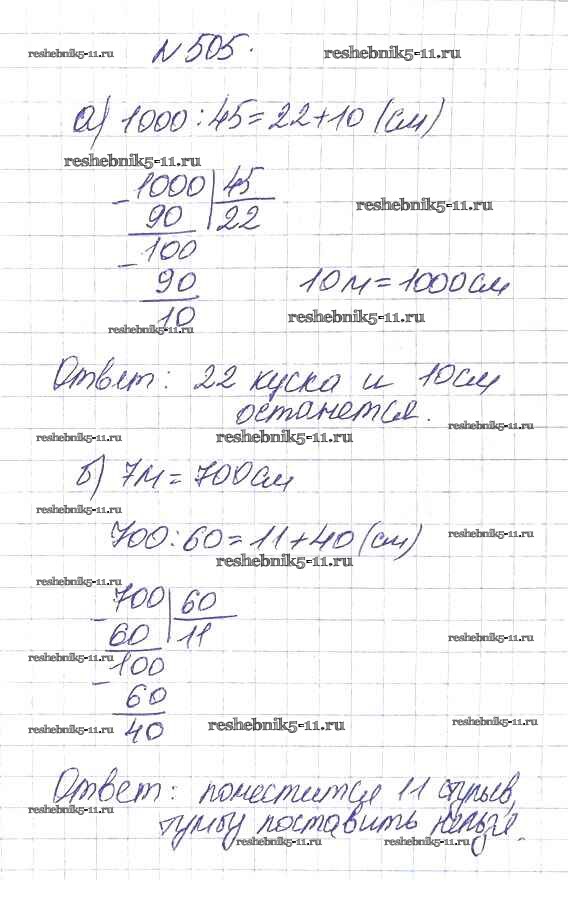 N505.
reshebnik5-11.ru reshebnik5-11.ru
а) 1000:45=22+10 (см)
reshebnik5-11.ru
1000 45
reshebnik5-11.ru
90 22
100
90 10м=1000см
10
reshebnik5-11.ru reshebnik5-11.ru
Ответ: 22 куска и 10см
останется.
reshebnik5-11.ru reshebnik5-11.ru reshebnik5-11.ru
б) 7м=700см
reshebnik5-11.ru
700:60=11+40 (см)
reshebnik5-11.ru reshebnik5-11.ru
reshebnik5-11.ru
700 60
60 11
reshebnik5-11.ru reshebnik5-11.ru
100
60
40
reshebnik5-11.ru reshebnik5-11.ru reshebnik5-11.ru
Ответ: поместится 11 стульев,
reshebnik5-11.ru
тумбу поставить
reshebnik5-11.ru reshebnik5-11.ru